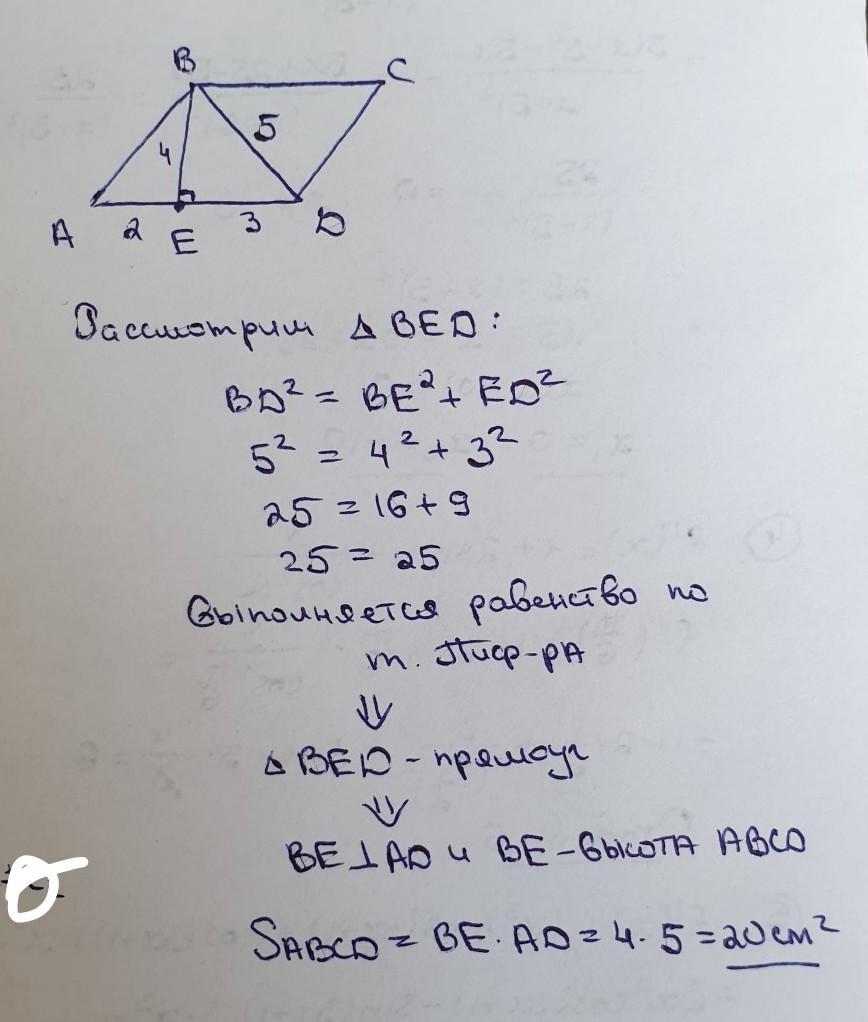 B C
4 5
A 2 E 3 D
Рассмотрим △ BED:
BD² = BE² + ED²
5² = 4² + 3²
25 = 16 + 9
25 = 25
Выполняется равенство по
т. Пиф-рА
⇓
△ BED - прямоуг
⇓
BE⊥AD и BE - высота ABCD
SABCD = BE · AD = 4 · 5 = 20 см²